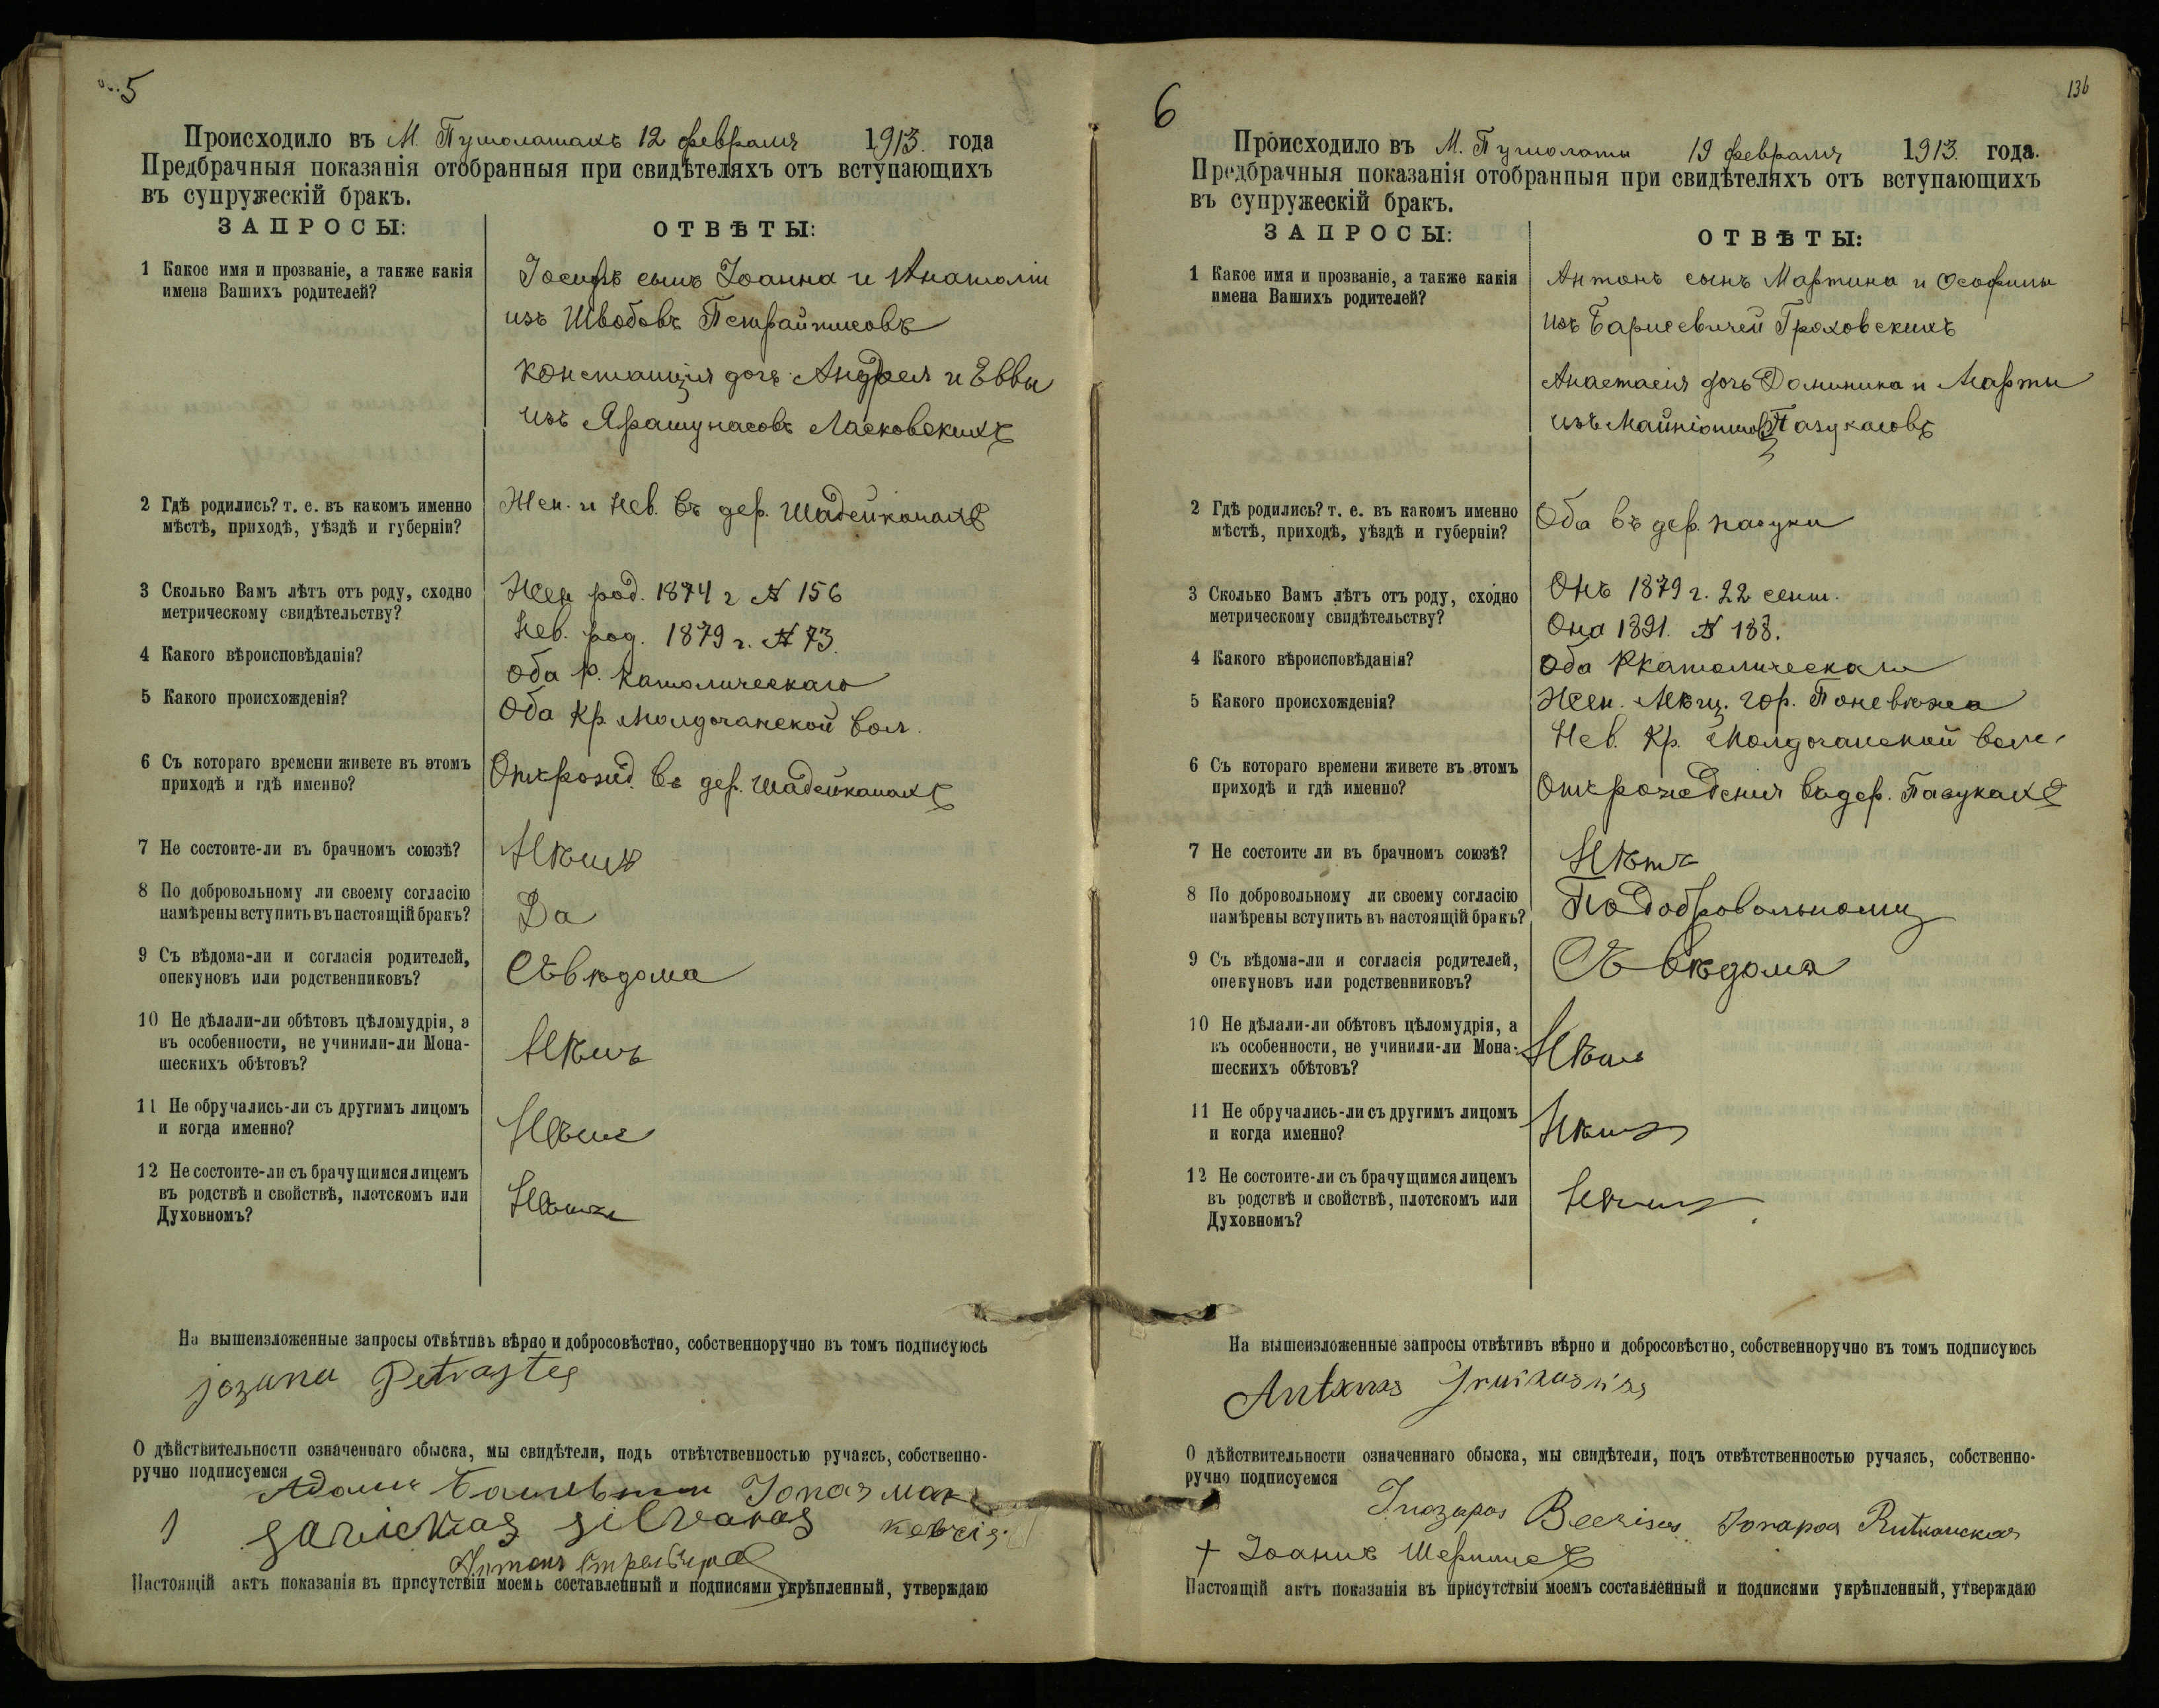 5
Происходило въ М. Пушолатахъ 12 февраля 1913. года
Предбрачныя показанія отобранныя при свидѣтеляхъ отъ вступающихъ
въ супружескій бракъ.
ЗАПРОСЫ:
ОТВѢТЫ:
1 Какое имя и прозваніе, а также какія
имена Вашихъ родителей?
Іосифъ сынъ Іоанна и Анатоліи
изъ Шведовъ
Констанція дочь Андрея и Еввы
изъ Ярашунасовъ Ласковскихъ
2 Гдѣ родились? т. е. въ какомъ именно
мѣстѣ, приходѣ, уѣздѣ и губерніи?
Жен. и Нев. въ дер. Шадейконахъ
3 Сколько Вамъ лѣтъ отъ роду, сходно
метрическому свидѣтельству?
Жен род. 1874 г № 156
Нев. род. 1879 г. № 73.
4 Какого вѣроисповѣданія?
Оба р. католическаго
5 Какого происхожденія?
Оба кр. Молдочанской вол.
6 Съ котораго времени живете въ этомъ
приходѣ и гдѣ именно?
Отърожд. въ дер. Шадейконахъ
7 Не состоите-ли въ брачномъ союзѣ?
Нѣтъ
8 По добровольному ли своему согласію
намѣрены вступить въ настоящій бракъ?
Да
9 Съ вѣдома-ли и согласія родителей,
опекуновъ или родственниковъ?
Съ вѣдома
10 Не дѣлали-ли обѣтовъ цѣломудрія, а
въ особенности, не учинили-ли Мона-
шескихъ обѣтовъ?
Нѣтъ
11 Не обручались-ли съ другимъ лицомъ
и когда именно?
Нѣтъ
12 Не состоите-ли съ брачущимся лицемъ
въ родствѣ и свойствѣ, плотскомъ или
Духовномъ?
Нѣтъ
На вышеизложенные запросы отвѣтивъ вѣрно и добросовѣстно, собственноручно въ томъ подписуюсь
О дѣйствительности означеннаго обыска, мы свидѣтели, подъ отвѣтственностью ручаясь, собственно-
ручно подписуемся
Адамъ
Антонъ
Настоящій актъ показанія въ присутствіи моемъ составленный и подписями укрѣпленный, утверждаю
6
136
Происходило въ М. Пушолаты 19 февраля 1913. года.
Предбрачныя показанія отобранныя при свидѣтеляхъ отъ вступающихъ
въ супружескій бракъ.
ЗАПРОСЫ:
ОТВѢТЫ:
1 Какое имя и прозваніе, а также какія
имена Вашихъ родителей?
Антонъ сынъ Мартина и
изъ Грохoвскихъ
Анастасія дочь Доминика и Марты
изъ Пазукасовъ
2 Гдѣ родились? т. е. въ какомъ именно
мѣстѣ, приходѣ, уѣздѣ и губерніи?
Оба въ дер. Пазуки
3 Сколько Вамъ лѣтъ отъ роду, сходно
метрическому свидѣтельству?
Онъ 1879 г. 22 сент.
Она 1891. № 188.
4 Какого вѣроисповѣданія?
Оба Ркатолическаго
5 Какого происхожденія?
Жен. Мѣщ. гор. Поневѣжа
Нев. кр. Молдочанской вол.
6 Съ котораго времени живете въ этомъ
приходѣ и гдѣ именно?
Отърожденія въ дер. Пазукахъ
7 Не состоите ли въ брачномъ союзѣ?
Нѣтъ
8 По добровольному ли своему согласію
намѣрены вступить въ настоящій бракъ?
По добровольному
9 Съ вѣдома-ли и согласія родителей,
опекуновъ или родственниковъ?
Съ вѣдома
10 Не дѣлали-ли обѣтовъ цѣломудрія, а
въ особенности, не учинили-ли Мона-
шескихъ обѣтовъ?
Нѣтъ
11 Не обручались-ли съ другимъ лицомъ
и когда именно?
Нѣтъ
12 Не состоите-ли съ брачущимся лицемъ
въ родствѣ и свойствѣ, плотскомъ или
Духовномъ?
Нѣтъ
На вышеизложенные запросы отвѣтивъ вѣрно и добросовѣстно, собственноручно въ томъ подписуюсь
О дѣйствительности означеннаго обыска, мы свидѣтели, подъ отвѣтственностью ручаясь, собственно-
ручно подписуемся
Настоящій актъ показанія въ присутствіи моемъ составленный и подписями укрѣпленный, утверждаю